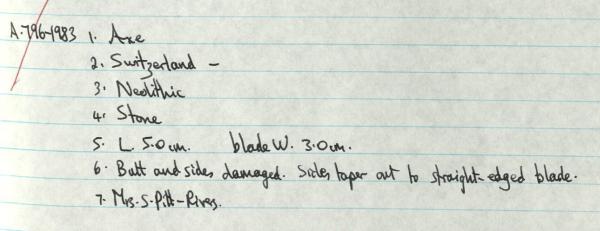 A.796-1983 1. Axe
2. Switzerland -
3. Neolithic
4. Stone
5. L. 5.0 cm. blade W. 3.0 cm.
6. Butt and sides damaged. Sides taper out to straight-edged blade.
7. Mrs. S. Pitt-Rivers.